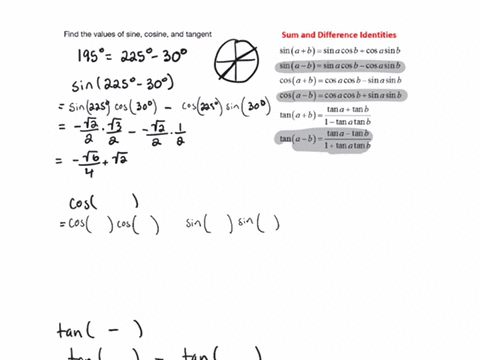 Find the values of sine, cosine, and tangent
195° = 225° - 30°
sin(225° - 30°)
= sin(225°) cos(30°) - cos(225°) sin(30°)
= -√2/2 · √3/2 - -√2/2 · 1/2
= -√6/4 + √2
cos( )
= cos( ) cos( ) sin( ) sin( )
tan( - )
tan( ) - tan( )
Sum and Difference Identities
sin(a+b) = sin a cos b + cos a sin b
sin(a−b) = sin a cos b − cos a sin b
cos(a+b) = cos a cos b − sin a sin b
cos(a−b) = cos a cos b + sin a sin b
tan(a+b) = tan a + tan b / 1 − tan a tan b
tan(a−b) = tan a − tan b / 1 + tan a tan b